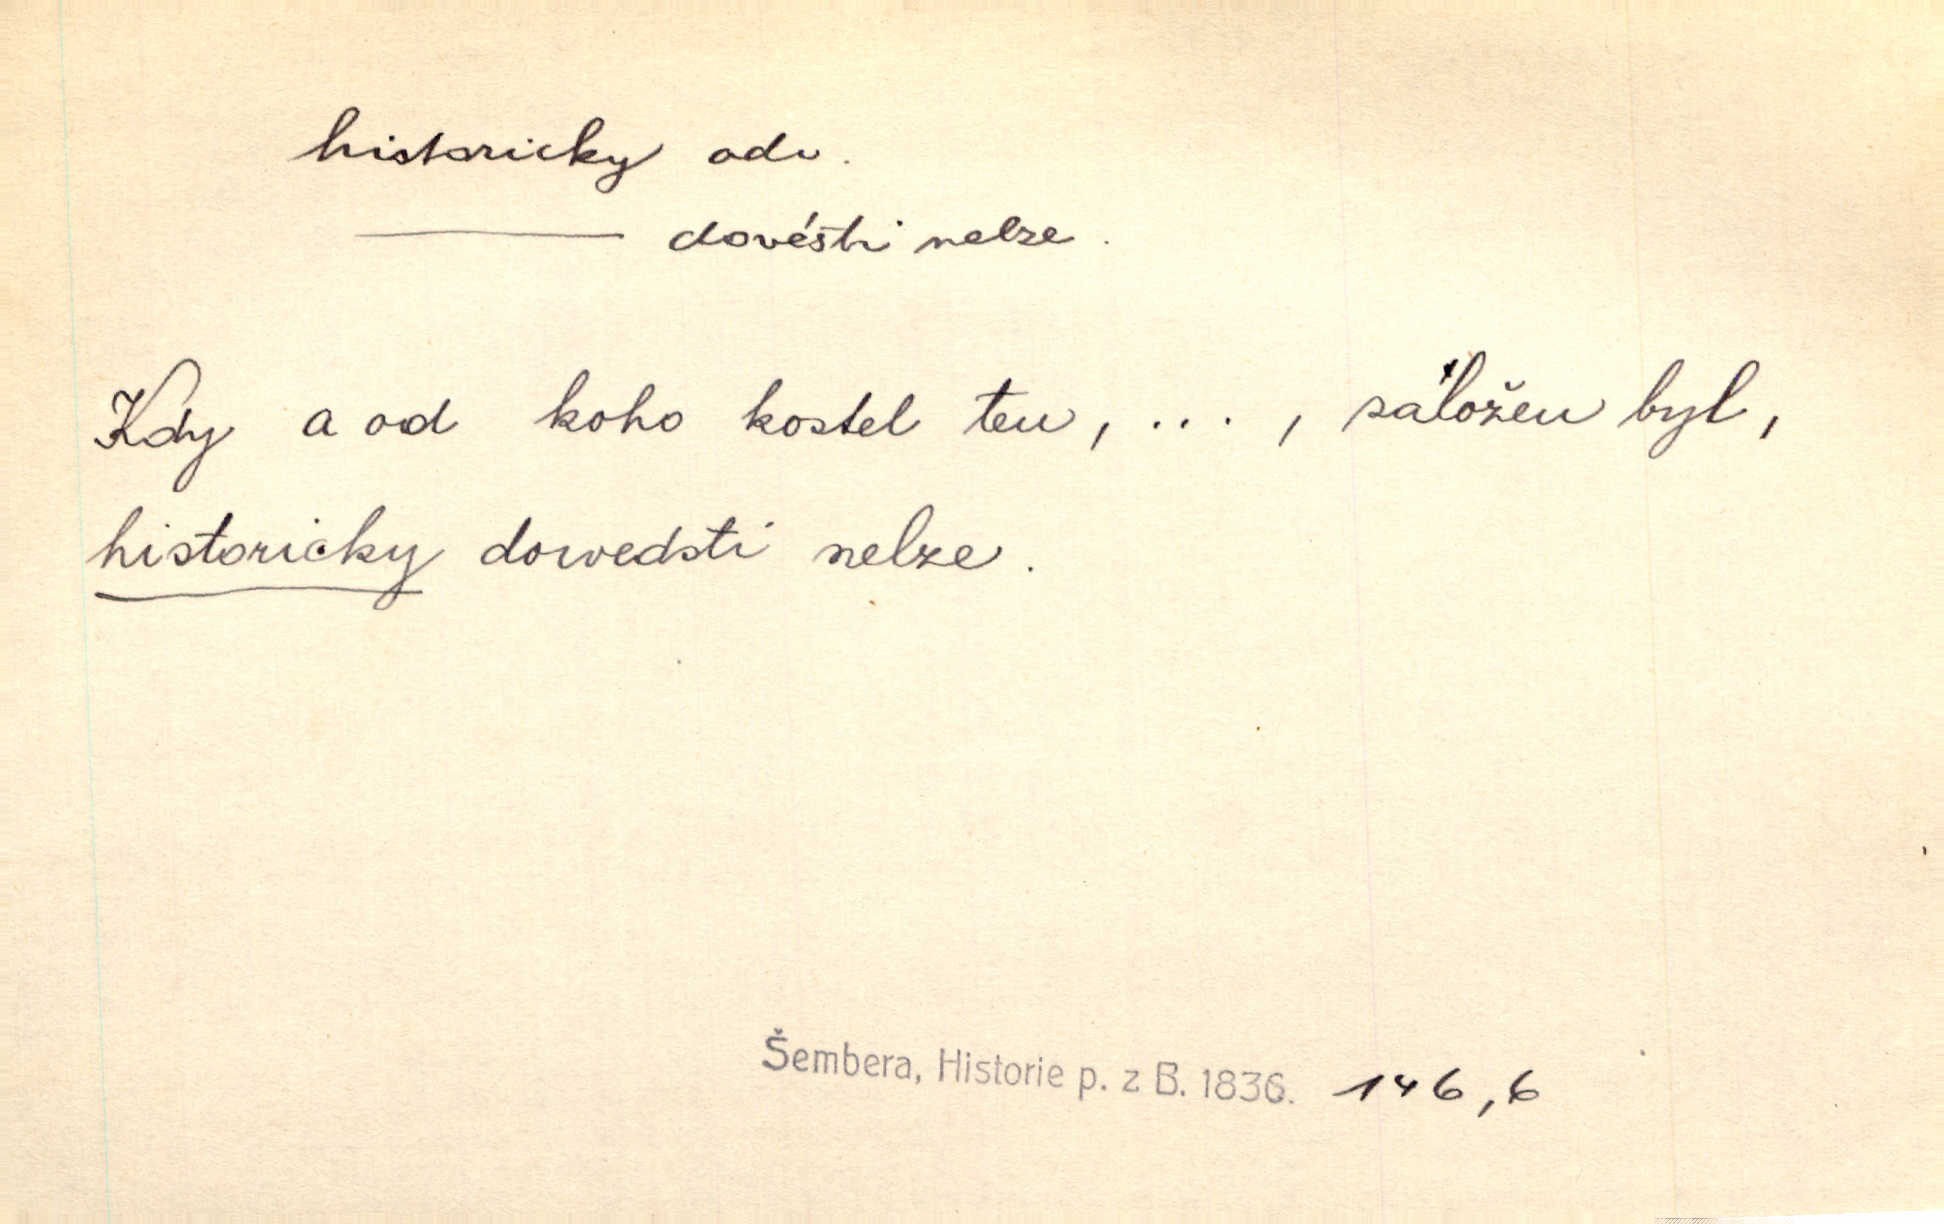 historicky adv.
——— dovésti nelze.
Kdy a od koho kostel ten, ..., založen byl,
historicky dowedsti nelze.
Šembera, Historie p. z B. 1836. 146,6